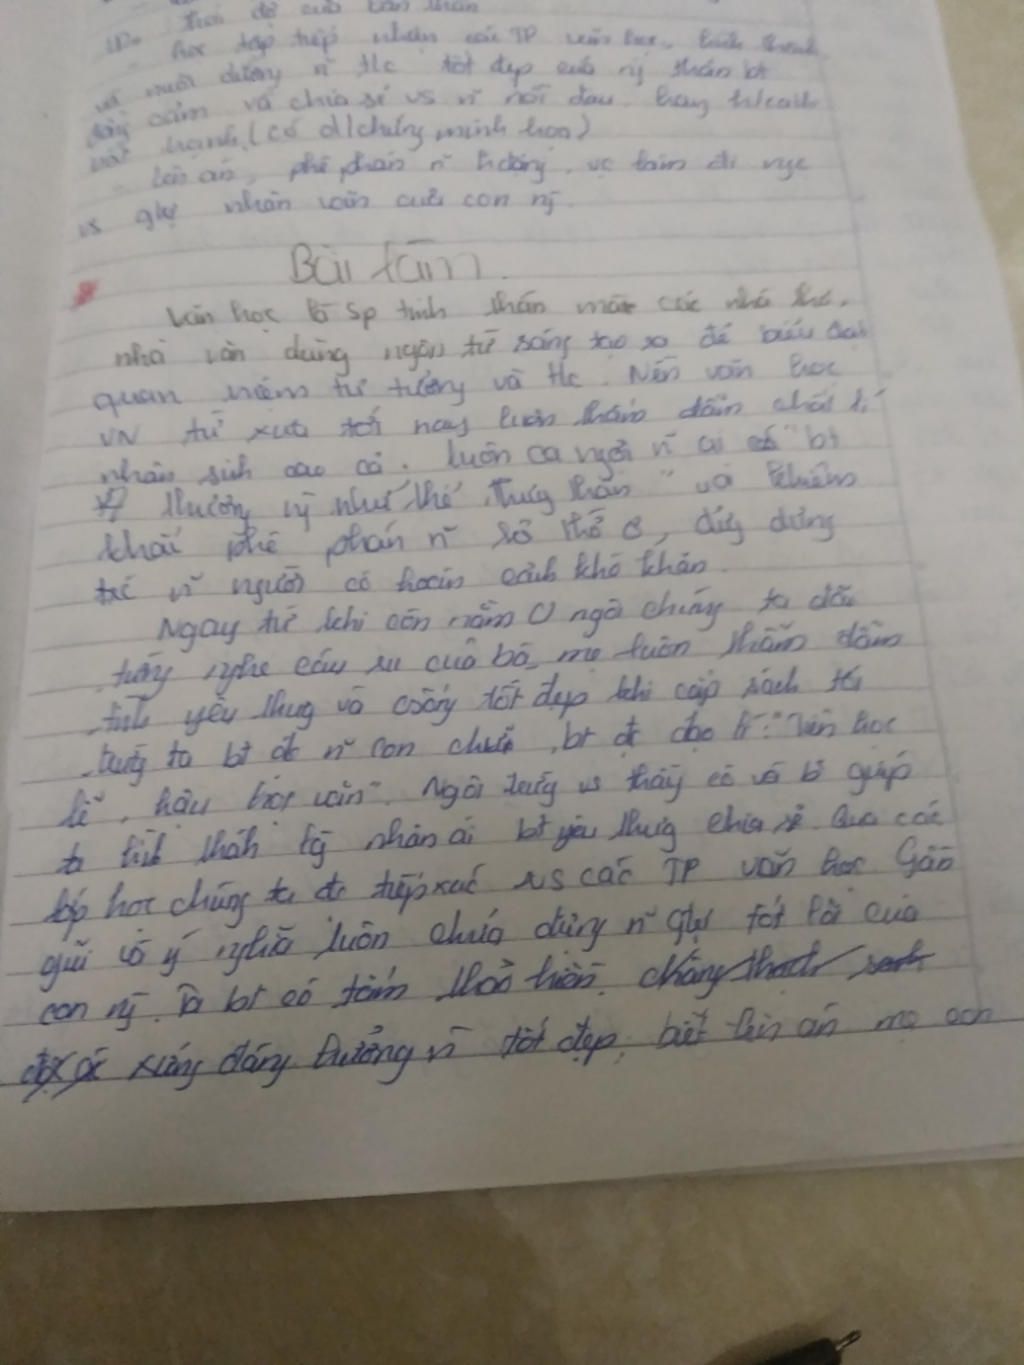 thái độ của bản thân
học tập tiếp nhận các TP văn học
và nuôi dưỡng n~ t/c tốt đẹp của ng thân bt
cảm và chia sẻ vs n~ nỗi đau. hay h/cảnh
bất hạnh (có d/chứng minh họa)
- lên án, phê phán n~ h động, vc làm đi ngc
vs gtrị nhân văn của con ng.
Bài làm
Văn học là sp tinh thần mà các nhà thơ,
nhà văn dùng ngôn từ sáng tạo ra để biểu đạt
quan niệm tư tưởng và t/c. Nền văn học
VN từ xưa tới nay luôn thấm đẫm chất lí
nhân sinh cao cả. luôn ca ngợi n~ ai "bt
thương ng như thể thương thân" và nghiêm
khắc phê phán n~ kẻ thờ ơ, dửng dưng
trc n~ người có hoàn cảnh khó khăn.
Ngay từ khi còn nằm ngôi chúng ta đã
từng nghe câu ru của bà, mẹ luôn thấm đẫm
tình yêu thương và tốt đẹp khi cắp sách tới
trường ta bt đc n~ con chữ, bt đc đạo lí: "Tiên học
lễ, hậu học văn". Ngôi trường vs thầy cô và b giúp
ta hình thành lòng nhân ái bt yêu thương chia sẻ. Qua các
lớp học chúng ta đc tiếp xúc vs các TP văn học Gần
gũi và ý nghĩa luôn chứa đựng n~ gtrị tốt lõi của
con ng. là bt có tấm
xứng đáng hưởng n~ tốt đẹp, biết lên án mọi